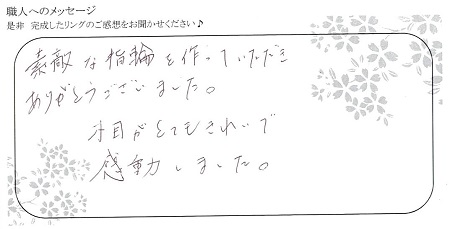 職人へのメッセージ
是非 完成したリングのご感想をお聞かせください♪
素敵な指輪を作っていただき
ありがとうございました。
木目がとてもきれいで
感動しました。